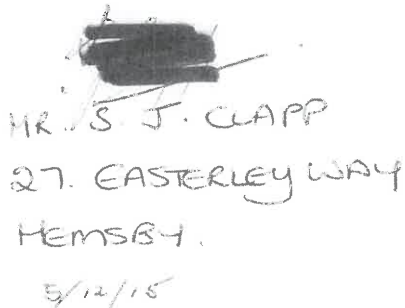 MR. S. J. CLAPP
27. EASTERLEY WAY
HEMSBY.
5/12/15